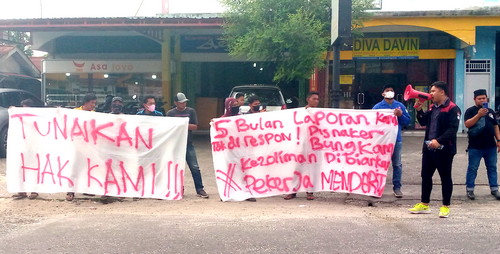 Asa Jaya
DIVA DAVIN
TUNAIKAN
HAK KAMI!!!
5 Bulan Laporan Kami
Tak di respon! Disnaker
Bungkam
Kezoliman Dibiarkan
Pekerja MENDERITA